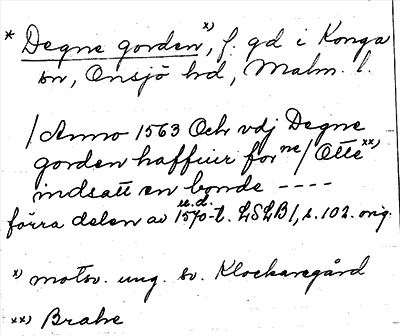 * Degne gorden x), f. gd i Konga
sn, Onsjö hd, Malm. l.
/Anno 1563 Och vdj Degne
gorden haffuer for ne/Otte xx)
indsatt en bonde ----
u.d.
förra delen av 1570-t. LSLB1, s. 102. orig.
x) motsv. ung. sv. Klockaregård
xx) Brahe